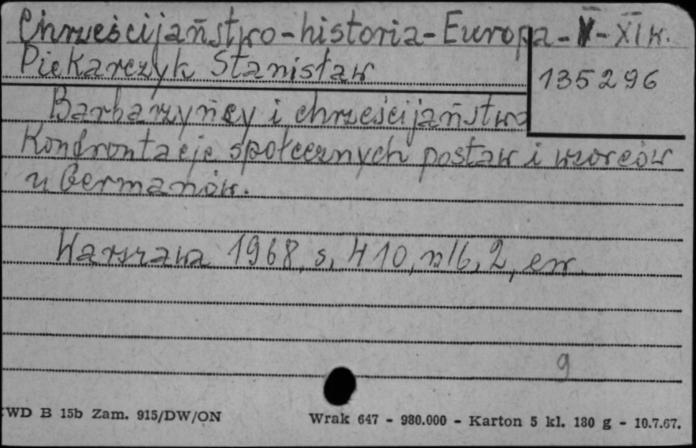 Chrześcijaństwo-historia-Europa-V-XI w.
Piekarczyk Stanisław
135296
Barbarzyńcy i chrześcijaństwo
Konfrontacje społecznych postaw i wzorców
u Germanów.
Warszawa 1968, s. 410, nlb. 2, err.
9
WD B 15b Zam. 915/DW/ON
Wrak 647 - 980.000 - Karton 5 kl. 180 g - 10.7.67.